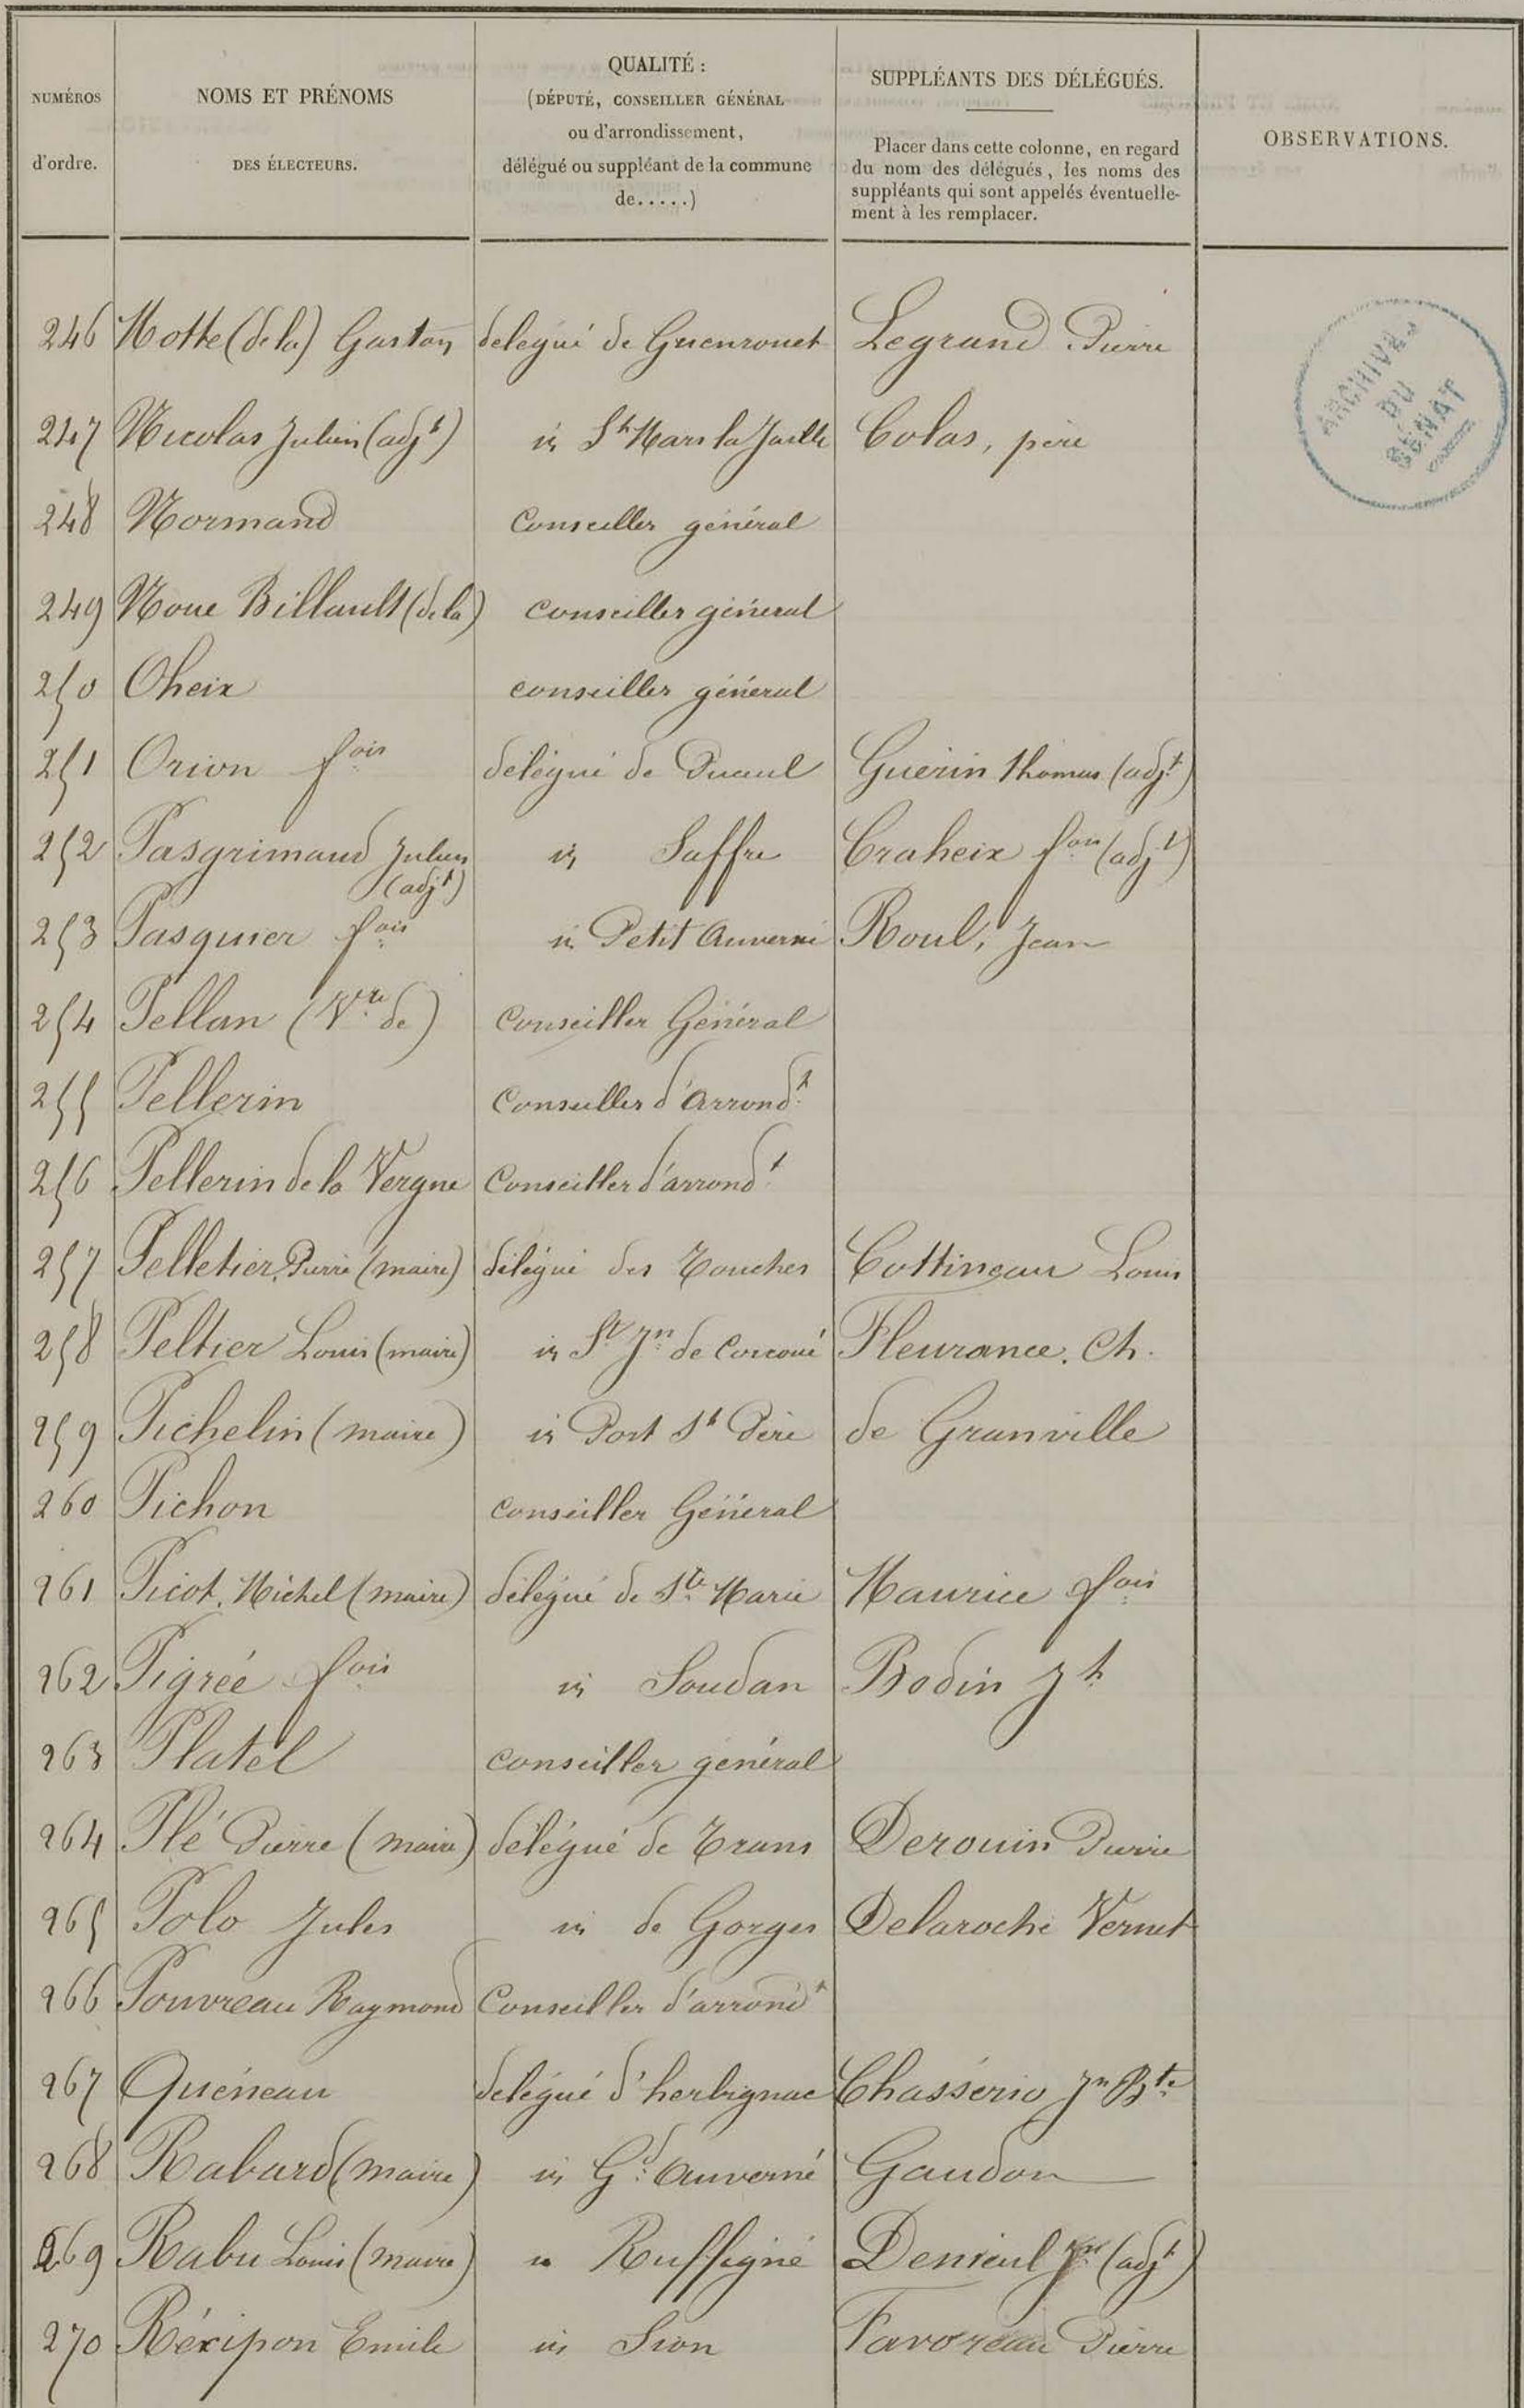 NUMÉROS
d'ordre.
NOMS ET PRÉNOMS
DES ÉLECTEURS.
QUALITÉ :
(DÉPUTÉ, CONSEILLER GÉNÉRAL
ou d'arrondissement,
délégué ou suppléant de la commune
de.....)
SUPPLÉANTS DES DÉLÉGUÉS.
Placer dans cette colonne, en regard
du nom des délégués, les noms des
suppléants qui sont appelés éventuelle-
ment à les remplacer.
OBSERVATIONS.
ARCHIVES
DU
SÉNAT
246 Motte (de la) Gaston délégué de Guenrouet Legrand Pierre
247 Nicolas Julien (adjt) id St Mars la Jaille Colas, père
248 Normand Conseiller général
249 Noue Billault (de la) conseiller général
250 Oheix conseiller général
251 Orion fois délégué de Puceul Guérin Thomas (adjt)
252 Pasgrimaud Julien id Saffré Craheix fois (adjt)
(adjt)
253 Pasquier fois id Petit Auverné Roul, Jean
254 Pellan (Vte de) Conseiller Général
255 Pellerin Conseiller d'Arrondt
256 Pellerin de la Vergne Conseiller d'arrondt
257 Pelletier, Pierre (maire) délégué des Touches Cottineau Louis
258 Peltier Louis (maire) id St Jn de Corcoué Fleurance. Ch.
259 Pichelin (maire) id Port St Père de Granville
260 Pichon conseiller Général
261 Picot, Michel (maire) délégué de Ste Marie Maurice fois
262 Pigrée fois id Soudan Bodin Jh
263 Platel conseiller général
264 Plé Pierre (maire) délégué de Trans Derouin Pierre
265 Polo Jules id de Gorges Delaroche Vernet
266 Pouvreau Raymond Conseiller d'arrondt
267 Quéneau délégué d'herbignac Chassério Jn Bte
268 Rabard (maire) id Gd Auverné Gaudon
269 Rabu Louis (maire) id Ruffigné Denieul Jn (adjt)
270 Récipon Emile id Sion Favoreau Pierre